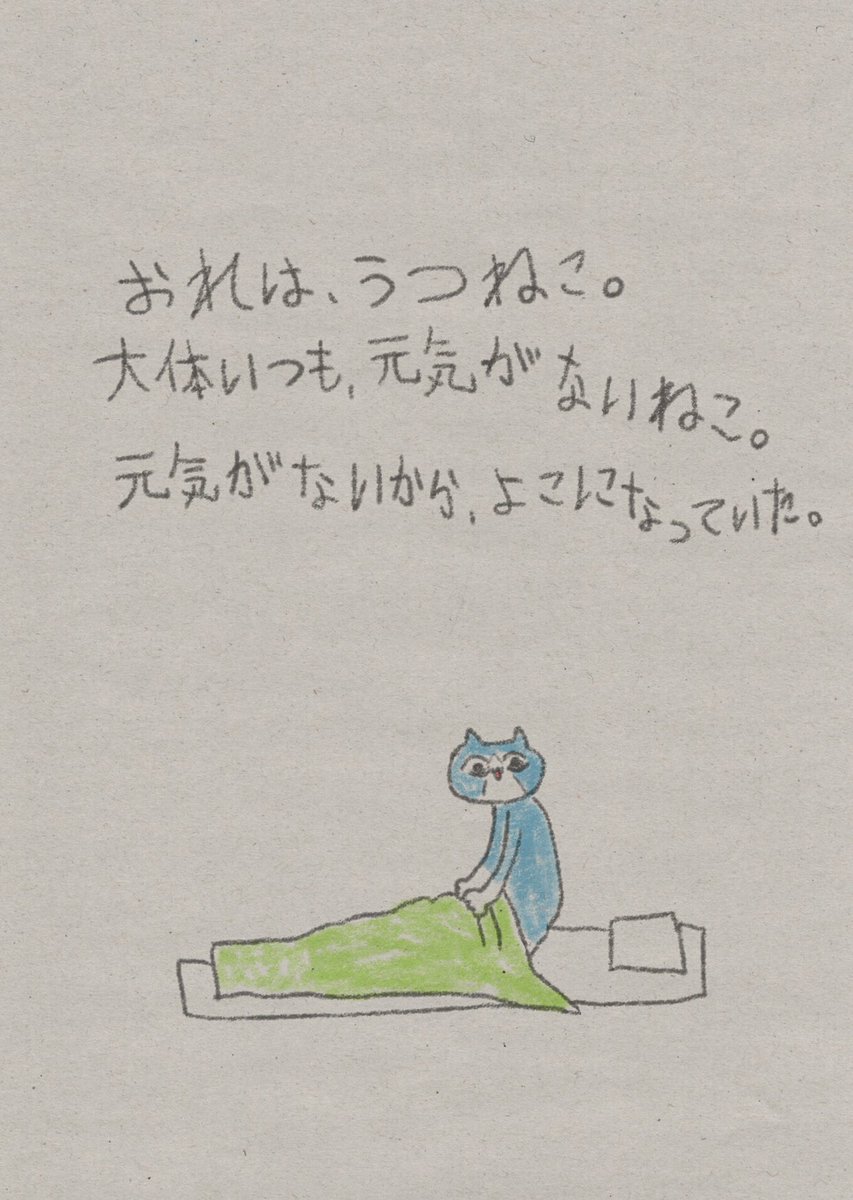 おれは、うつねこ。
大体いつも、元気がないねこ。
元気がないから、よこになっていた。